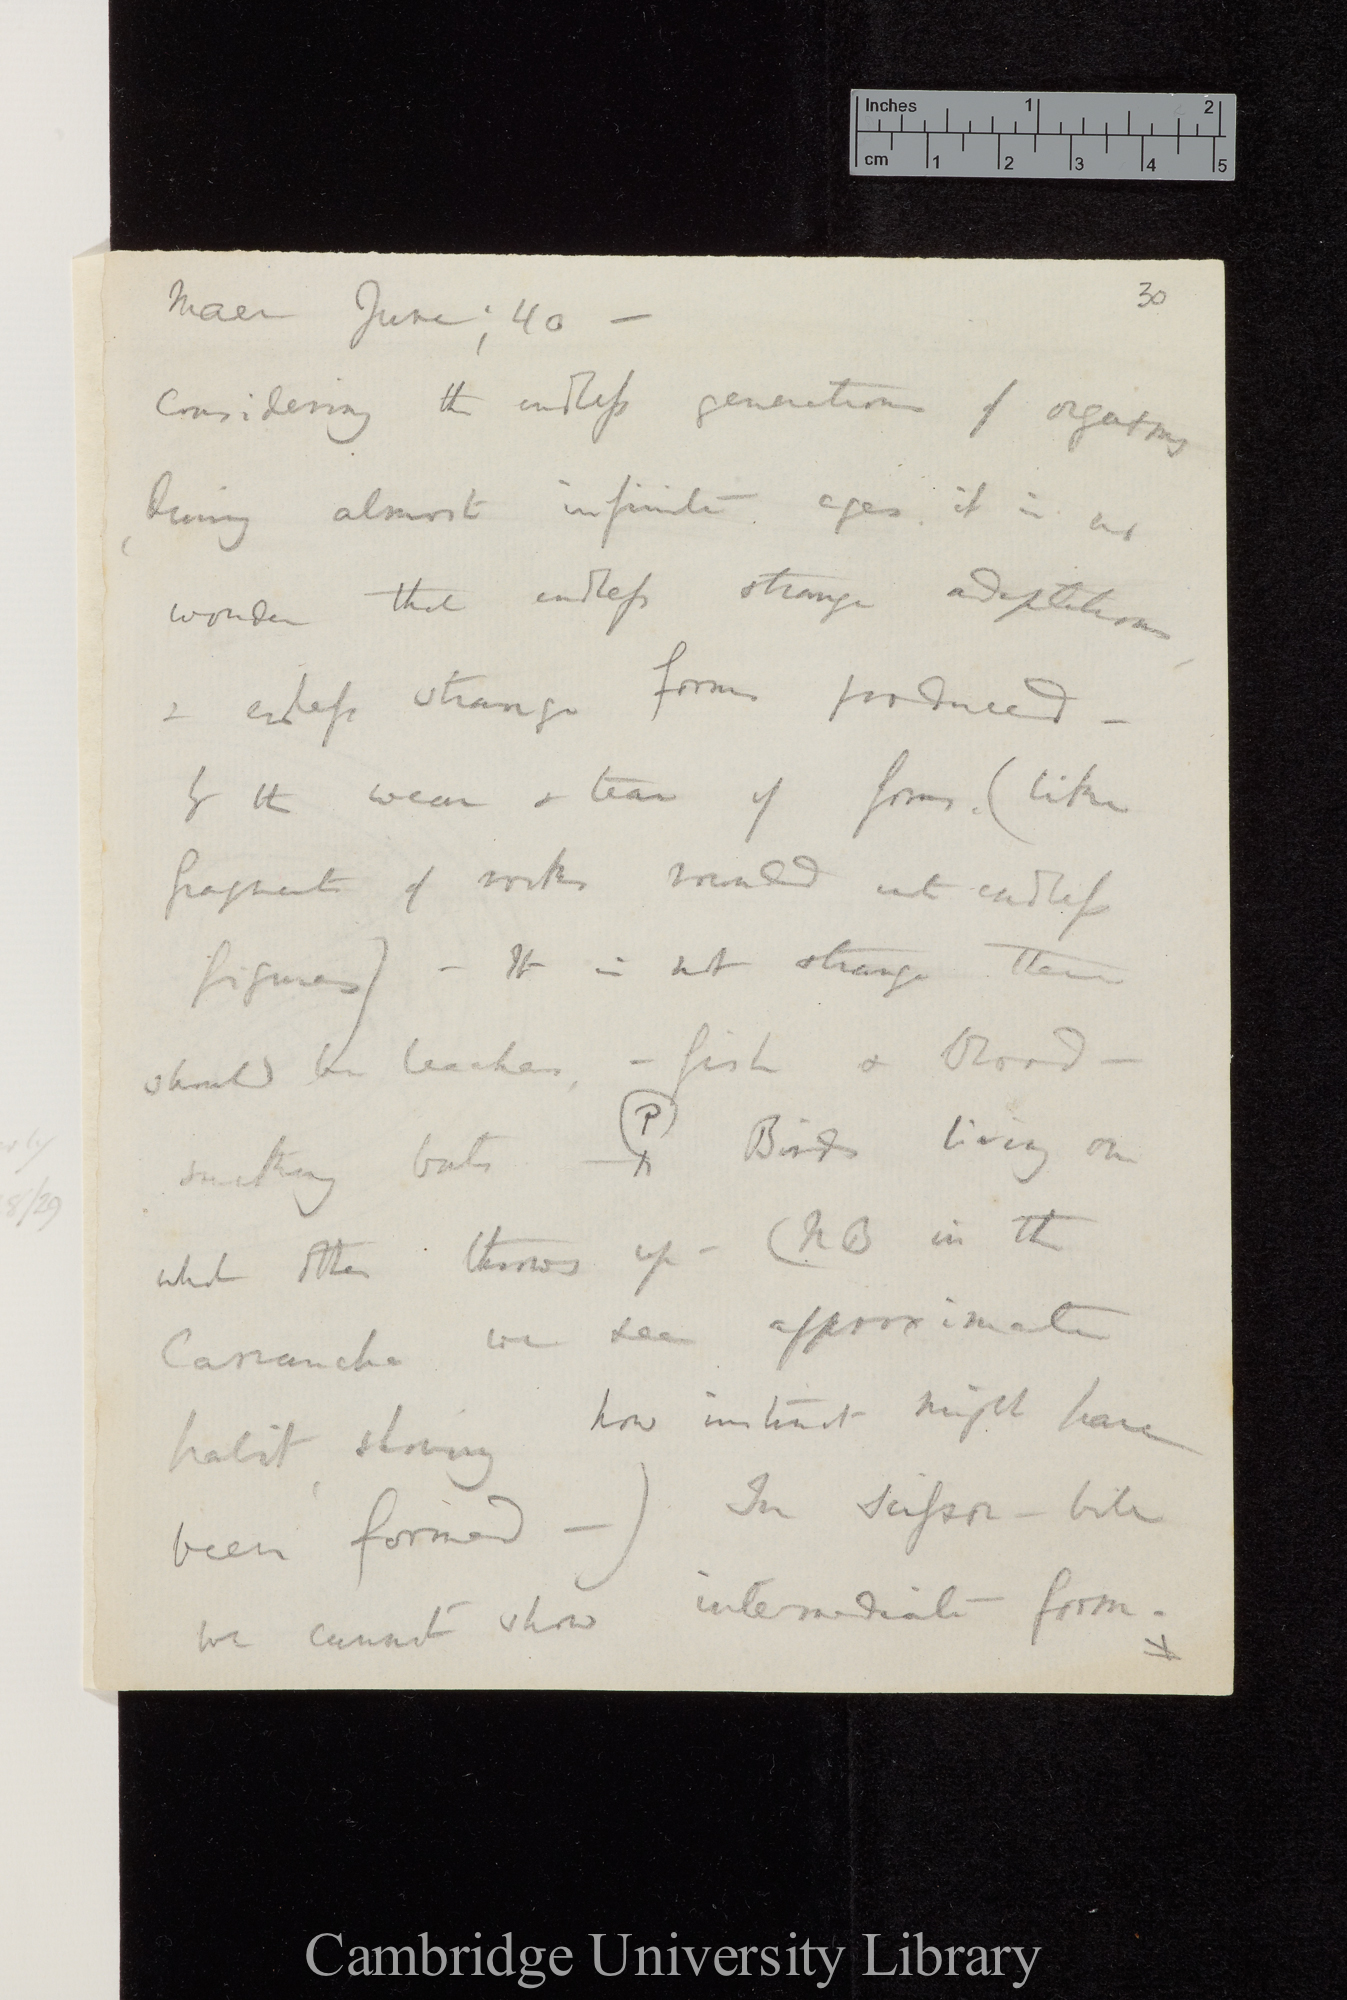 Inches 1 2
cm 1 2 3 4 5
30
Maer June; 40 —
Considering the endless generations of
during almost infinite ages, it is no
wonder that endless strange adaptations,
& endless strange forms produced —
by the wear & tear of forms. (like
fragments of rocks round into endless
figures) — It is not strange there
should be leaches, — fish & blood —
sucking bats — Ⓟ Birds living on
what other throws up — (NB in the
Carrancha we see approximate
habit, showing how instinct might have
been formed —) In Scissor-bill
we cannot show intermediate form.
8/29
Cambridge University Library